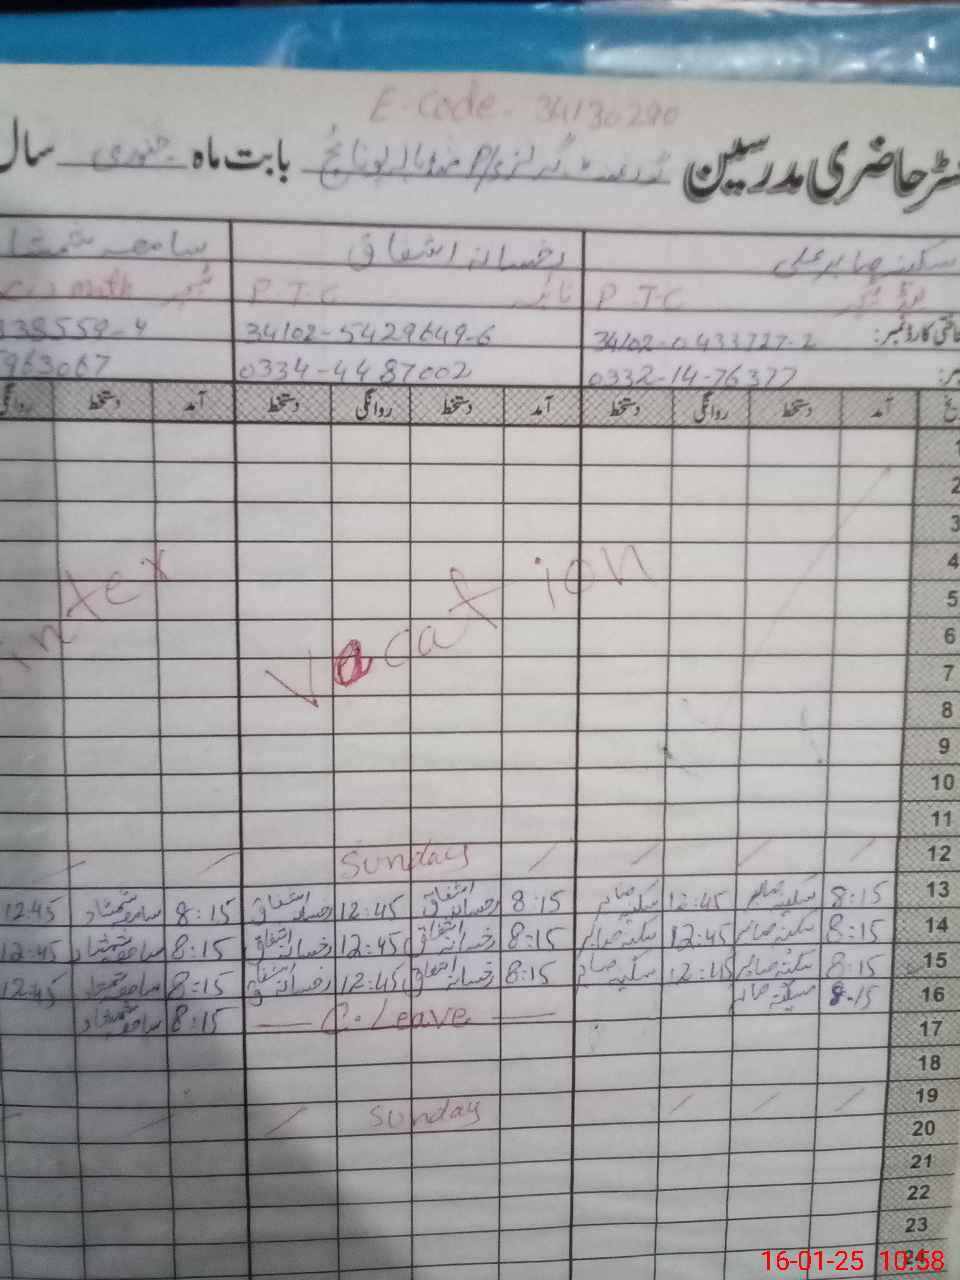 E-Code. 34130290
رجسٹر حاضری مدرسین گورنمنٹ گرلز P/S بابت ماہ جنوری سال
سکینہ صابر علی رخسانہ اشفاق سامعہ شمشاد
P.T.C نائب P.T.C ٹیچر math
شناختی کارڈ نمبر: 34102-0433727-2 34102-5429649-6 338559-4
0332-14-76377 0334-4487002 963067
آمد دستخط روانگی دستخط آمد دستخط روانگی دستخط آمد دستخط روانگی
1
2
3
4
5
6
7
8
9
10
11
Vacation
12 Sunday
13 8:15 سکینہ صابر 12:45 سکینہ صابر 8:15 رخسانہ اشفاق 12:45 رخسانہ اشفاق 8:15 سامعہ شمشاد 12:45
14 8:15 سکینہ صابر 12:45 سکینہ صابر 8:15 رخسانہ اشفاق 12:45 رخسانہ اشفاق 8:15 سامعہ شمشاد 12:45
15 8:15 سکینہ صابر 12:45 سکینہ صابر 8:15 رخسانہ اشفاق 12:45 رخسانہ اشفاق 8:15 سامعہ شمشاد 12:45
16 8:15 سکینہ صابر C.Leave 8:15 سامعہ شمشاد
17
18
19 Sunday
20
21
22
23
24
16-01-25 10:58